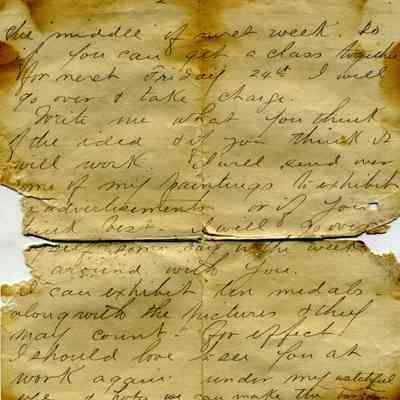 the middle of next week. So
if you can get a class together
for next Friday 24th I will
go over & take charge.
Write me what you think
of the idea & if you think it
will work. I will send over
some of my paintings to exhibit
advertisements or if you
find best. I will go over
some day in the week
around with you.
I can exhibit ten medals
along with the pictures & they
may count - for effect
I should love to see you at
work again under my watchful
eye. I hope we can make the